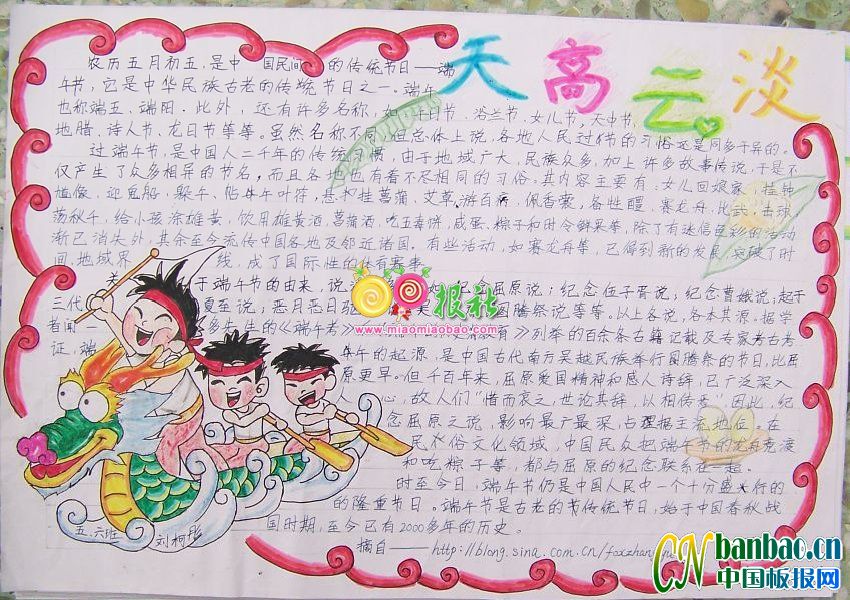 天高云淡
农历五月初五,是中国民间的传统节日——端
午节,它是中华民族古老的传统节日之一。端午
也称端五、端阳。此外,还有许多名称,如:午日节、浴兰节、女儿节,天中节、
地腊、诗人节、龙日节等等。虽然名称不同,但总体上说,各地人民过节的习俗还是同多于异的。
过端午节,是中国人二千年的传统习惯,由于地域广大,民族众多,加上许多故事传说,于是不
仅产生了众多相异的节名,而且各地也有着不尽相同的习俗。其内容主要有:女儿回娘家,挂钟
馗像,迎鬼船、躲午、帖午叶符,悬挂菖蒲、艾草,游百病,佩香囊,备牲醴,赛龙舟,比武,击球,
荡秋千,给小孩涂雄黄,饮用雄黄酒、菖蒲酒,吃五毒饼、咸蛋、粽子和时令鲜果等,除了有迷信色彩的活动
渐已消失外,其余至今流传中国各地及邻近诸国。有些活动,如赛龙舟等,已得到新的发展,突破了时
间,地域界线,成了国际性的体育赛事。
关于端午节的由来,说 纪念屈原说;纪念伍子胥说;纪念曹娥说;起于
三代夏至说;恶月恶日驱 图腾祭说等等。以上各说,各本其源。据学
者闻一多先生的《端午考》 列举的百余条古籍记载及专家考古考
证,端午的起源,是中国古代南方吴越民族举行图腾祭的节日,比屈
原更早。但千百年来,屈原爱国精神和感人诗辞,已广泛深入
人心,故人们“惜而哀之,世论其辞,以相传焉”,因此,纪
念屈原之说,影响最广最深,占据主流地位。在
民俗文化领域,中国民众把端午节的龙舟竞渡
和吃粽子等,都与屈原的纪念联系在一起。
时至今日,端午节仍是中国人民中一个十分盛行的
的隆重节日。端午节是古老的传统节日,始于中国春秋战
国时期,至今已有2000多年的历史。
摘自——http://blong.sina.com.cn/foxzhan
五、六班 刘柯彤
报社
www.miaomiaobao.com
CNbanbao.cn
中国板报网